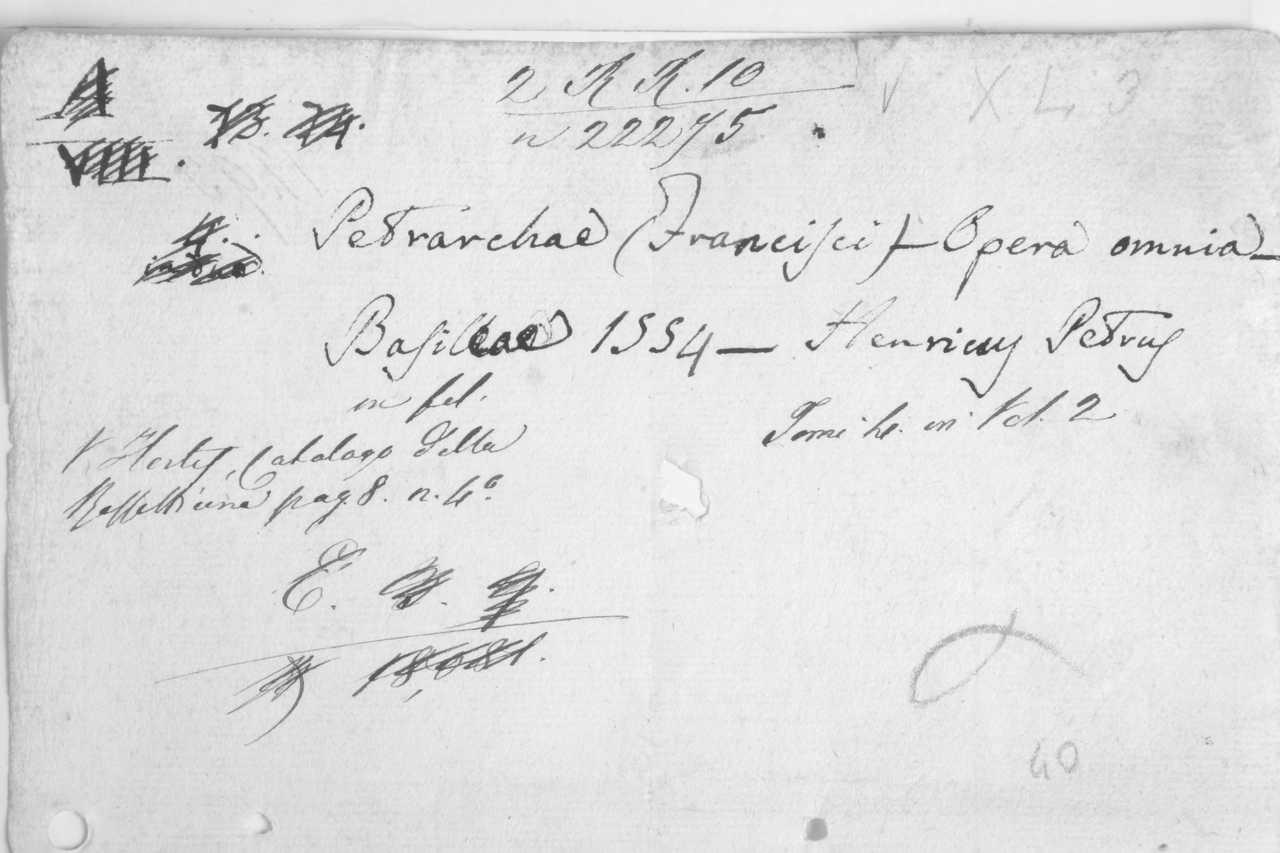 A
VIII. 13. 24.
2 R R. 10
n 22275
√ X L 3
Petrarchae (Francisci) - Opera omnia -
Basileae 1554 - Henricus Petrus
in fol.
Tomi in Vol. 2
V. Catalogo della
pag. 8. n. 4º
E.
18,081.
40